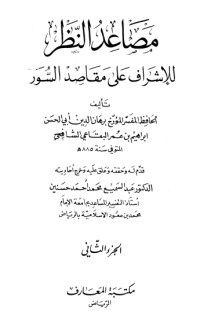 مصاعد النظر
للإشراف على مقاصد السور
تأليف
الحافظ المفسر المؤرخ برهان الدين أبي الحسن
ابراهيم بن عمر البقاعي الشافعي
المتوفى سنة ٨٨٥ هـ
قدم له وحققه وعلق عليه وخرج أحاديثه
الدكتور عبد السميع محمد أحمد حسنين
أستاذ التفسير المساعد بجامعة الإمام
محمد بن سعود الإسلامية بالرياض
الجزء الثاني
مكتبة المعارف
الرياض